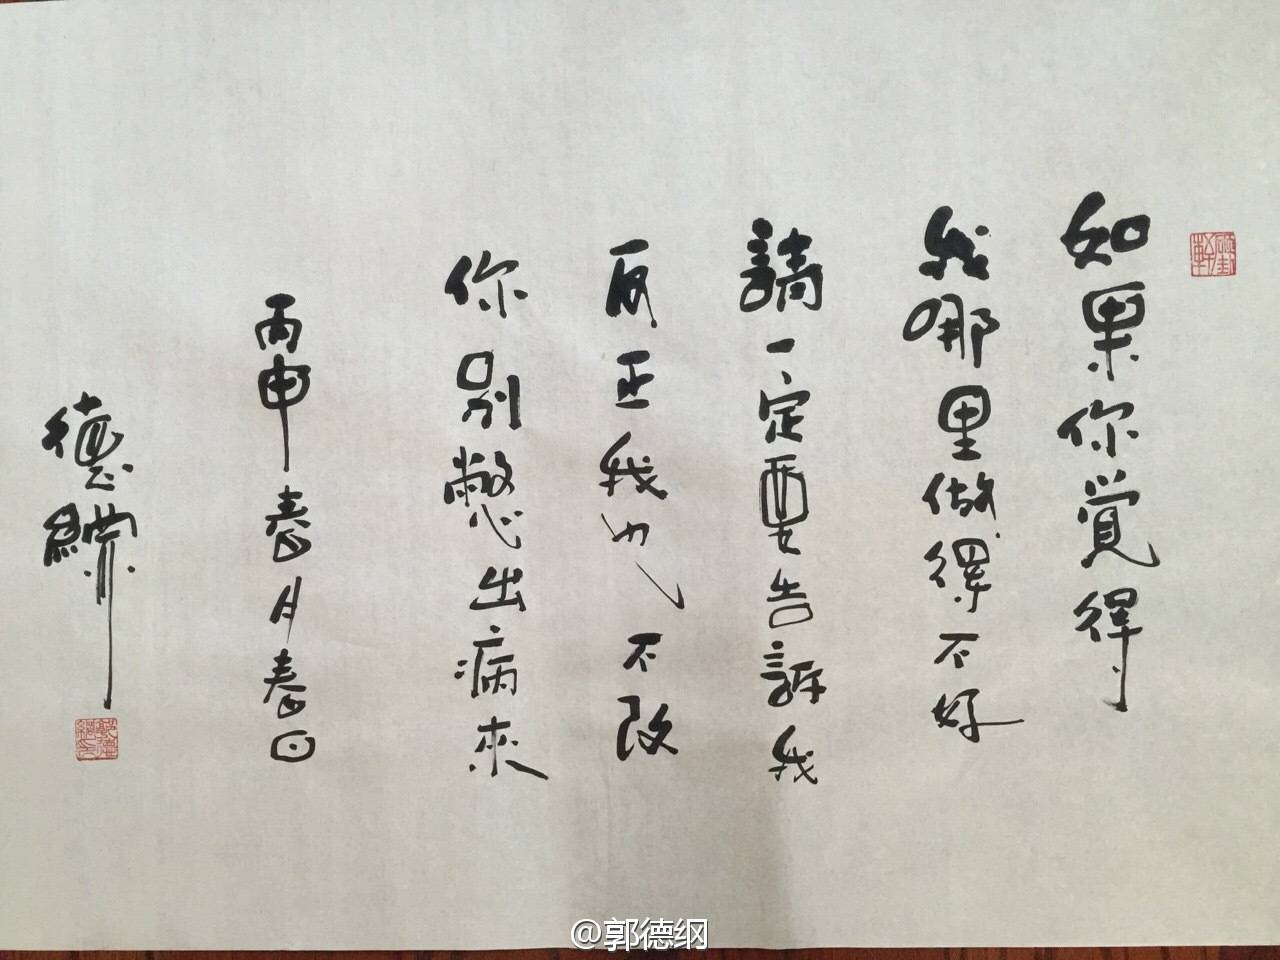 如果你覺得
我哪里做得不好
請一定要告訴我
反正我也不改
你別憋出病來
丙申春月春日
德綱
郭德綱印
@郭德纲